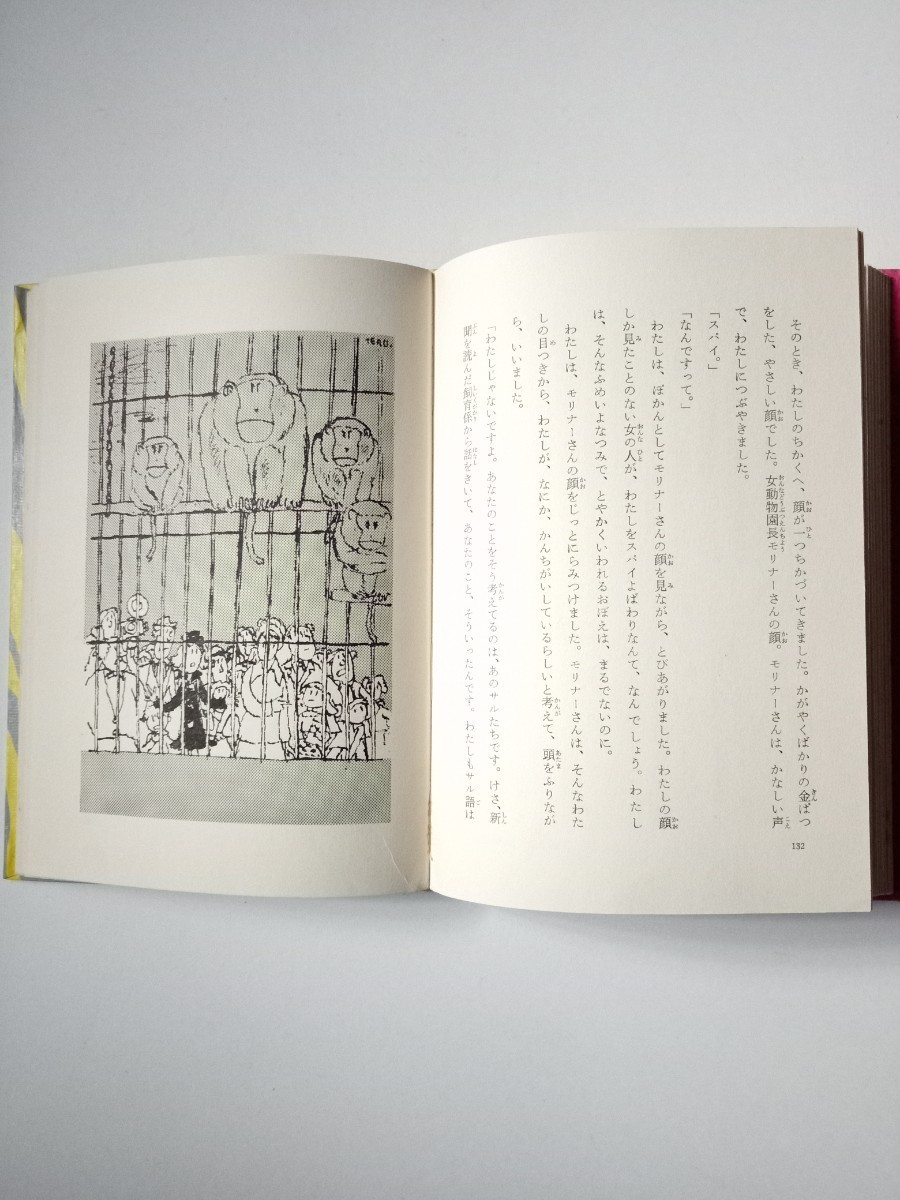 そのとき、わたしのちかくへ、顔が一つちかづいてきました。かがやくばかりの金ぱつ
をした、やさしい顔でした。女動物園長モリナーさんの顔。モリナーさんは、かなしい声
で、わたしにつぶやきました。
「スパイ。」
「なんですって。」
わたしは、ぽかんとしてモリナーさんの顔を見ながら、とびあがりました。わたしの顔
しか見たことのない女の人が、わたしをスパイよばわりなんて、なんでしょう。わたし
は、そんなふめいよなつみで、とやかくいわれるおぼえは、まるでないのに。
わたしは、モリナーさんの顔をじっとにらみつけました。モリナーさんは、そんなわた
しの目つきから、わたしが、なにか、かんちがいしているらしいと考えて、頭をふりなが
ら、いいました。
「わたしじゃないですよ。あなたのことをそう考えてるのは、あのサルたちです。けさ、新
聞を読んだ飼育係から話をきいて、あなたのこと、そういったんです。わたしもサル語は
132
TERU.